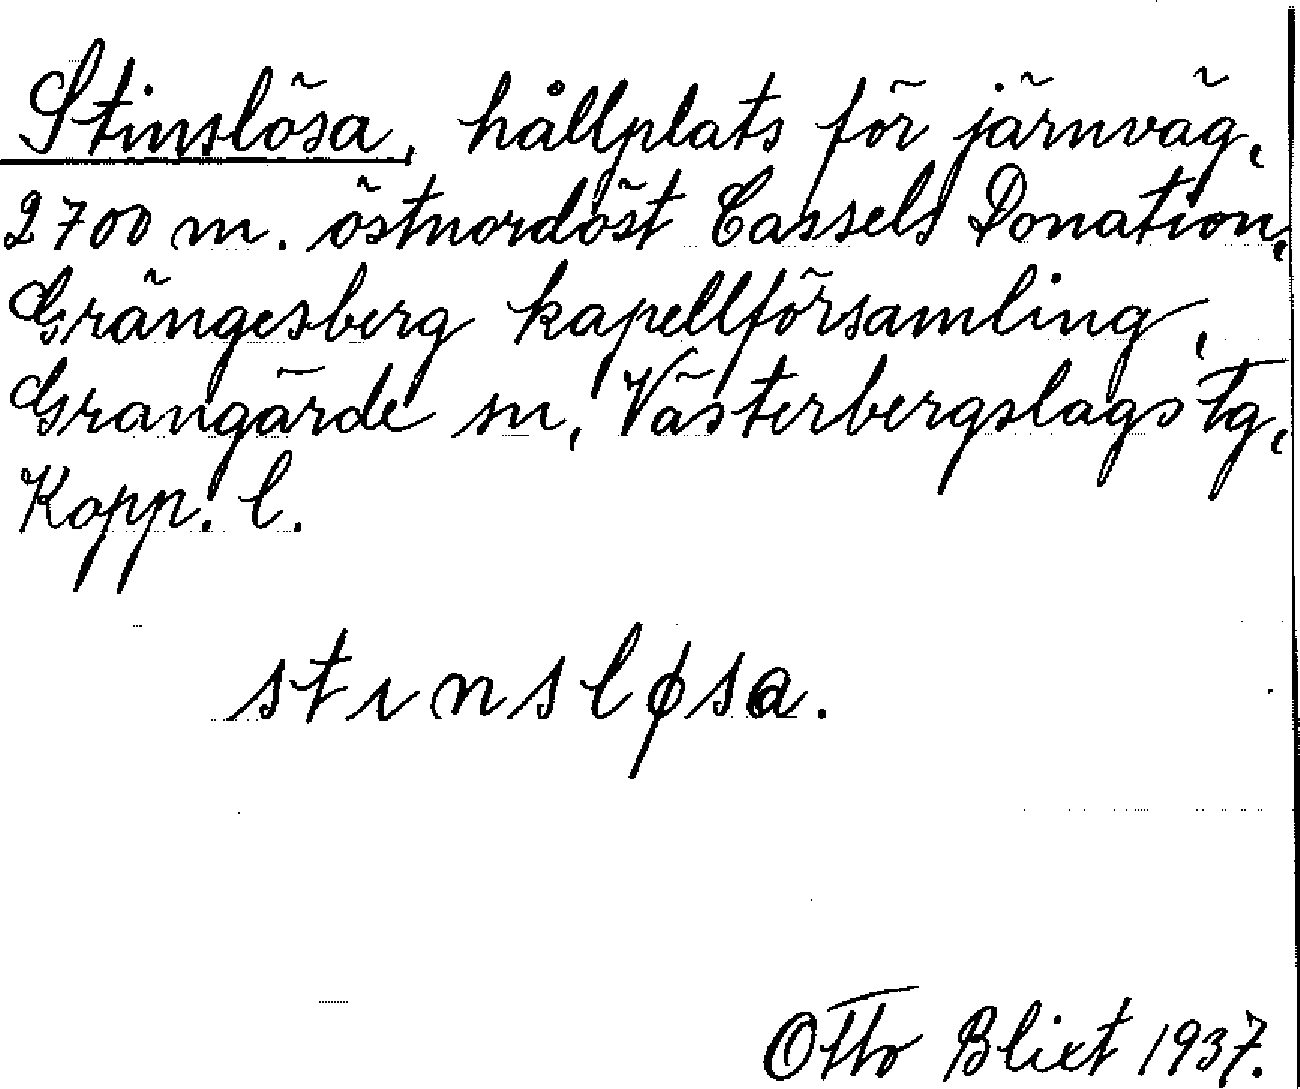 Stinslösa, hållplats för järnväg,
2700 m. östnordöst Cassels Donation,
Grängesberg kapellförsamling,
Grangärde sn, Västerbergslags tg,
Kopp. l.
stınslɸsa.
Otto Blixt 1937.